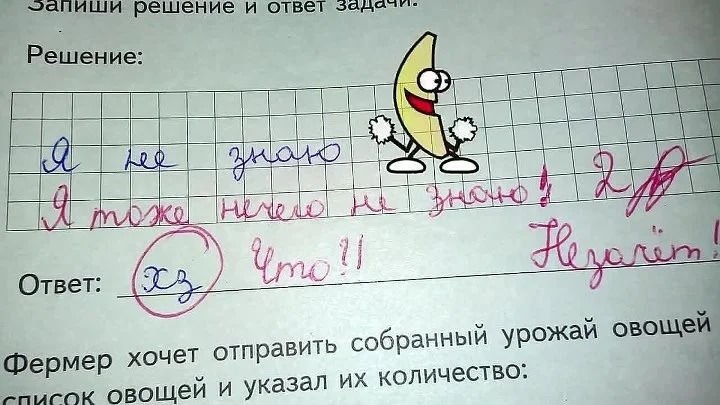 Запиши решение и ответ задачи.
Решение:
Я не знаю
Я тоже нечего не знаю! 2
Ответ: хз Что!!
Незачёт!
Фермер хочет отправить собранный урожай овощей
список овощей и указал их количество: